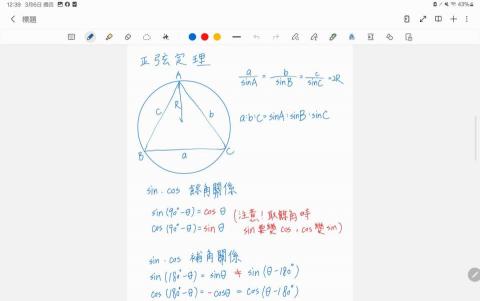 12:39 3月6日 週四
43%
標題
正弦定理
A
R
c
b
B
a
C
a/sinA = b/sinB = c/sinC = 2R
a:b:c = sinA:sinB:sinC
sin.cos 餘角關係
sin(90°-θ)=cosθ
cos(90°-θ)=sinθ
(注意!取餘角時
sin要變cos,cos變sin)
sin.cos 補角關係
sin(180°-θ)=sinθ ≠ sin(θ-180°)
cos(180°-θ)=-cosθ = cos(θ-180°)